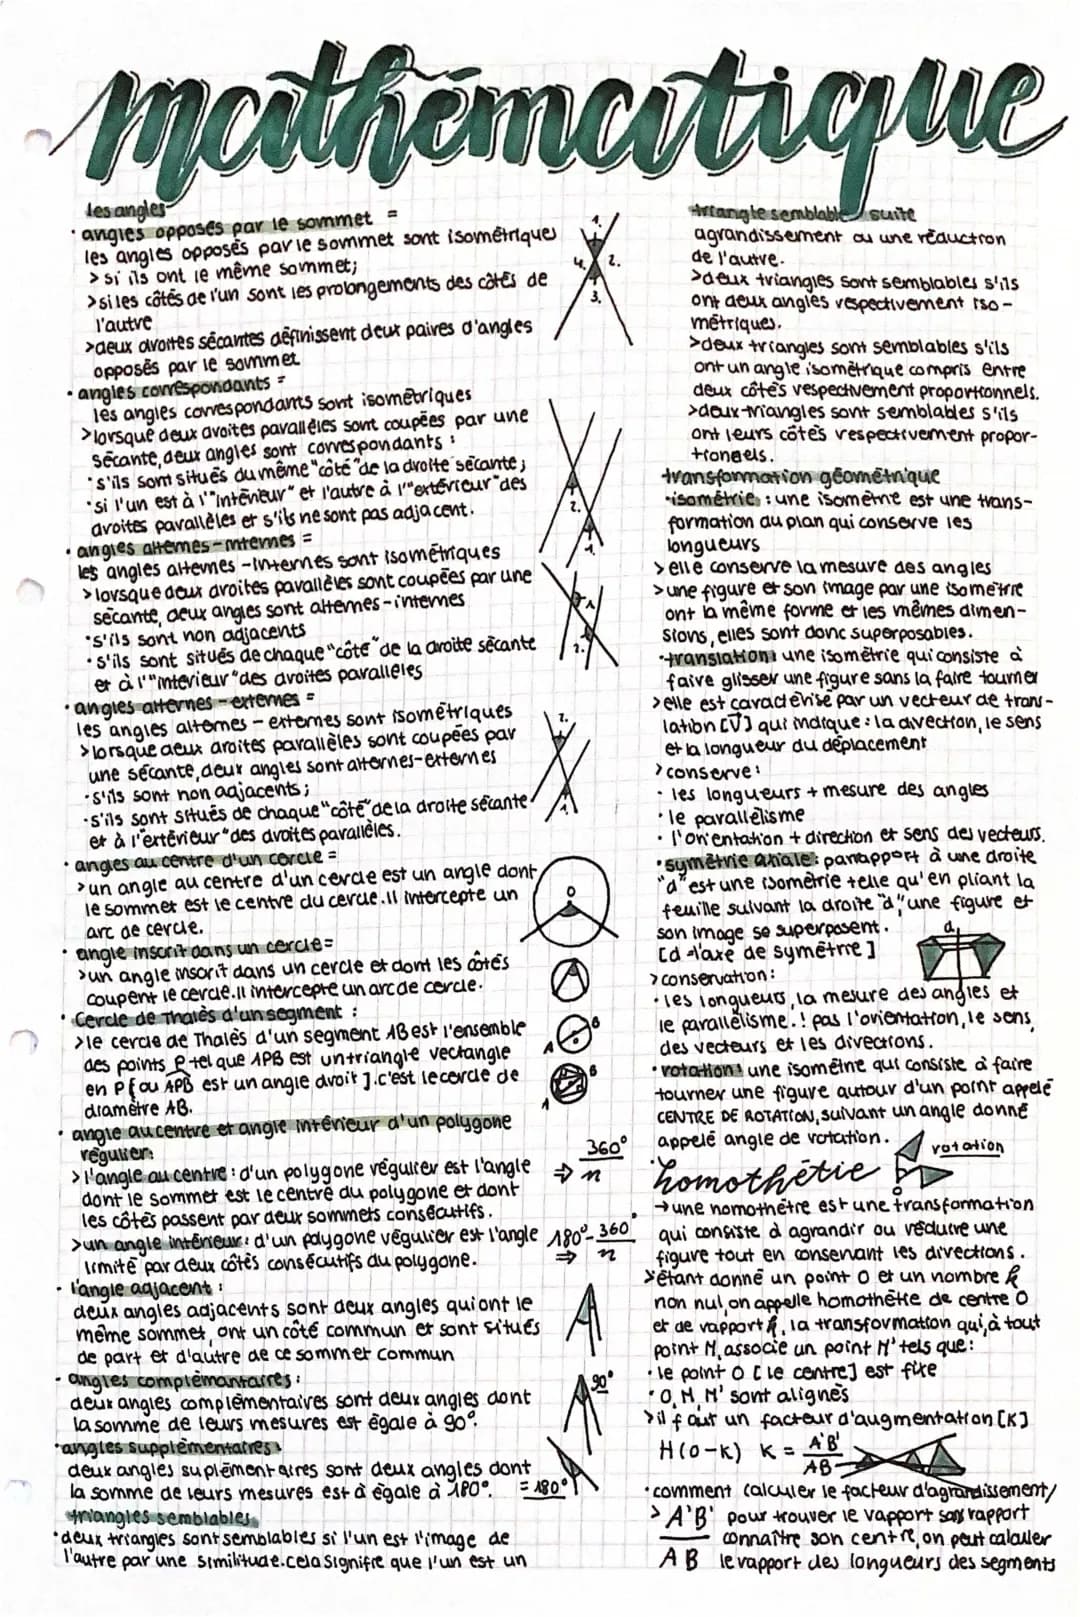 mathématique
les angles
• angles opposés par le sommet =
les angles opposés par le sommet sont isométriques
> si ils ont le même sommet;
> si les côtés de l'un sont les prolongements des côtés de
l'autre
> deux droites sécantes définissent deux paires d'angles
opposés par le sommet
1.
4.
2.
3.
• angles correspondants =
les angles correspondants sont isométriques
> lorsque deux droites parallèles sont coupées par une
sécante, deux angles sont correspondants :
• s'ils sont situés du même "côté" de la droite sécante;
• si l'un est à l'"intérieur" et l'autre à l'"extérieur" des
droites parallèles et s'ils ne sont pas adjacent.
2.
1.
• angles alternes-internes =
les angles alternes-internes sont isométriques
> lorsque deux droites parallèles sont coupées par une
sécante, deux angles sont alternes-internes
• s'ils sont non adjacents
• s'ils sont situés de chaque "côté" de la droite sécante
et à l'"intérieur" des droites parallèles
1
2.
• angles alternes-externes =
les angles alternes-externes sont isométriques
> lorsque deux droites parallèles sont coupées par
une sécante, deux angles sont alternes-externes
• s'ils sont non adjacents;
• s'ils sont situés de chaque "côté" de la droite sécante
et à l'extérieur" des droites parallèles.
2.
1.
• angles au centre d'un cercle =
> un angle au centre d'un cercle est un angle dont
le sommet est le centre du cercle. Il intercepte un
arc de cercle.
O
• angle inscrit dans un cercle =
> un angle inscrit dans un cercle et dont les côtés
coupent le cercle. Il intercepte un arc de cercle.
• Cercle de Thalès d'un segment :
> le cercle de Thalès d'un segment AB est l'ensemble
des points P tel que APB est un triangle rectangle
en P [ou APB est un angle droit]. c'est le cercle de
diamètre AB.
A B
A B
• angle au centre et angle intérieur d'un polygone
régulier:
> l'angle au centre : d'un polygone régulier est l'angle
dont le sommet est le centre du polygone et dont
les côtés passent par deux sommets consécutifs.
⇒ 360°
n
> un angle intérieur: d'un polygone régulier est l'angle
limité par deux côtés consécutifs du polygone.
180° - 360°
⇒ n
• l'angle adjacent :
deux angles adjacents sont deux angles qui ont le
même sommet, ont un côté commun et sont situés
de part et d'autre de ce sommet commun
• angles complémantaires :
deux angles complémentaires sont deux angles dont
la somme de leurs mesures est égale à 90°.
90°
• angles supplémentaires
deux angles suplémentaires sont deux angles dont
la somme de leurs mesures est à égale à 180°.
= 180°
triangles semblables
• deux triangles sont semblables si l'un est l'image de
l'autre par une similitude. cela signifie que l'un est un
triangle semblable suite
agrandissement ou une réduction
de l'autre.
> deux triangles sont semblables s'ils
ont deux angles respectivement iso-
métriques.
> deux triangles sont semblables s'ils
ont un angle isométrique compris entre
deux côtés respectivement proportionnels.
> deux triangles sont semblables s'ils
ont leurs côtés respectivement propor-
tionnels.
transformation géométrique
• isométrie : une isométrie est une trans-
formation du plan qui conserve les
longueurs
> elle conserve la mesure des angles
> une figure et son image par une isométrie
ont la même forme et les mêmes dimen-
sions, elles sont donc superposables.
• translation : une isométrie qui consiste à
faire glisser une figure sans la faire tourner
> elle est caractérisé par un vecteur de trans-
lation [V] qui indique : la direction, le sens
et la longueur du déplacement
> conserve :
• les longueurs + mesure des angles
• le parallélisme
• l'orientation + direction et sens des vecteurs.
• symétrie axiale : par rapport à une droite
"d" est une isométrie telle qu'en pliant la
feuille suivant la droite "d", une figure et
son image se superposent.
[d = l'axe de symétrie]
d
> conservation :
• les longueurs, la mesure des angles et
le parallélisme. ! pas l'orientation, le sens
des vecteurs et les directions.
• rotation : une isométrie qui consiste à faire
tourner une figure autour d'un point appelé
CENTRE DE ROTATION, suivant un angle donné
appelé angle de rotation.
rotation
O
• homothétie
→ une homothétie est une transformation
qui consiste à agrandir ou réduire une
figure tout en conservant les directions.
> étant donné un point O et un nombre k
non nul, on appelle homothétie de centre O
et de rapport k, la transformation qui, à tout
point M, associe un point M' tels que :
• le point O [le centre] est fixe
• O, M, M' sont alignés
> il faut un facteur d'augmentation [K]
H(O-K) K = A'B'
AB
• comment calculer le facteur d'agrandissement/
rapport
> A'B' pour trouver le rapport sans
connaître son centre, on peut calculer
AB le rapport des longueurs des segments